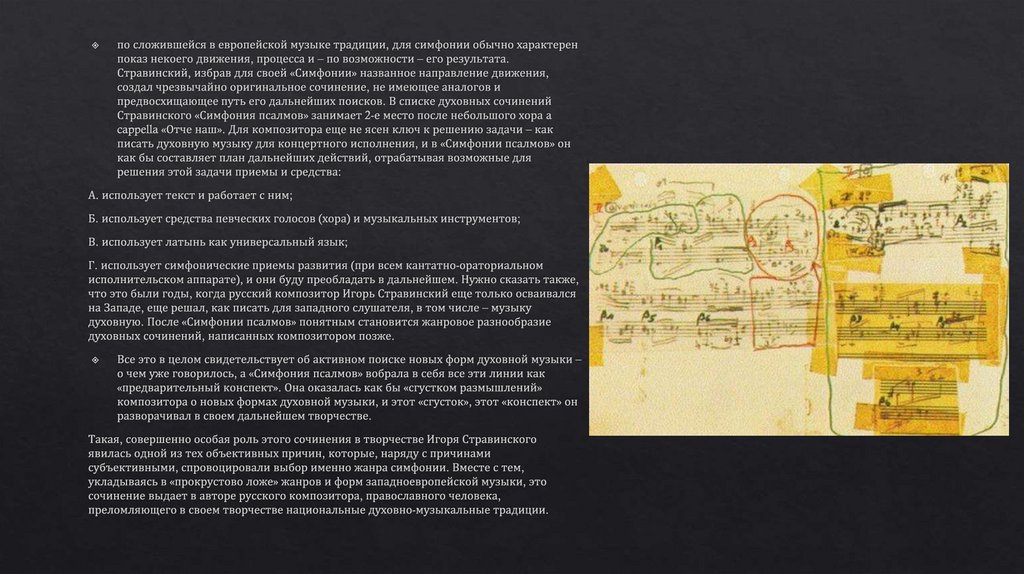 по сложившейся в европейской музыке традиции, для симфонии обычно характерен
показ некоего движения, процесса и – по возможности – его результата.
Стравинский, избрав для своей «Симфонии» названное направление движения,
создал чрезвычайно оригинальное сочинение, не имеющее аналогов и
предвосхищающее путь его дальнейших поисков. В списке духовных сочинений
Стравинского «Симфония псалмов» занимает 2-е место после небольшого хора a
cappella «Отче наш». Для композитора еще не ясен ключ к решению задачи – как
писать духовную музыку для концертного исполнения, и в «Симфонии псалмов» он
как бы составляет план дальнейших действий, отрабатывая возможные для
решения этой задачи приемы и средства:
А. использует текст и работает с ним;
Б. использует средства певческих голосов (хора) и музыкальных инструментов;
В. использует латынь как универсальный язык;
Г. использует симфонические приемы развития (при всем кантатно-ораториальном
исполнительском аппарате), и они буду преобладать в дальнейшем. Нужно сказать также,
что это были годы, когда русский композитор Игорь Стравинский еще только осваивался
на Западе, еще решал, как писать для западного слушателя, в том числе – музыку
духовную. После «Симфонии псалмов» понятным становится жанровое разнообразие
духовных сочинений, написанных композитором позже.
Все это в целом свидетельствует об активном поиске новых форм духовной музыки –
о чем уже говорилось, а «Симфония псалмов» вобрала в себя все эти линии как
«предварительный конспект». Она оказалась как бы «сгустком размышлений»
композитора о новых формах духовной музыки, и этот «сгусток», этот «конспект» он
разворачивал в своем дальнейшем творчестве.
Такая, совершенно особая роль этого сочинения в творчестве Игоря Стравинского
явилась одной из тех объективных причин, которые, наряду с причинами
субъективными, спровоцировали выбор именно жанра симфонии. Вместе с тем,
укладываясь в «прокрустово ложе» жанров и форм западноевропейской музыки, это
сочинение выдает в авторе русского композитора, православного человека,
преломляющего в своем творчестве национальные духовно-музыкальные традиции.